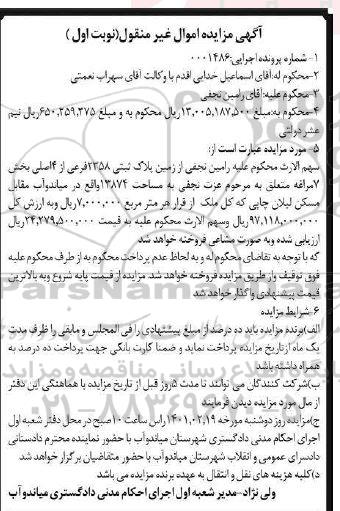 آگهی مزایده اموال غیر منقول(نوبت اول )
۱- شماره پرونده اجرایی:۰۰۰۱۴۸۶
۲-محکوم له:آقای اسماعیل خدایی اقدم با وکالت آقای سهراب نعمتی
۳-محکوم علیه:آقای رامین نجفی
۴-محکوم به:مبلغ ۱۳,۰۰۵,۱۸۷,۵۰۰ریال محکوم به و مبلغ ۶۵۰,۲۵۹,۳۷۵ریال نیم
عشر دولتی
۵- مورد مزایده عبارت است از:
سهم الارث محکوم علیه رامین نجفی از زمین پلاک ثبتی ۲۳۵۸فرعی از ۴اصلی بخش
۷مراغه متعلق به مرحوم عزت نجفی به مساحت ۱۳۸۷۴واقع در میاندوآب مقابل
مسکن لیلان چاپی که کل ملک از قرار هر متر مربع ۷,۰۰۰,۰۰۰ریال وبه ارزش کل
۹۷,۱۱۸,۰۰۰,۰۰۰ریال وسهم الارث محکوم علیه به قیمت ۲۴,۲۷۹,۵۰۰,۰۰۰ریال
ارزیابی شده وبه صورت مشاعی فروخته خواهد شد
که با توجه به تقاضای محکوم له و به لحاظ عدم پرداخت محکوم به از طرف محکوم علیه
فوق توقیف واز طریق مزایده فروخته خواهد شد. مزایده از قیمت پایه شروع وبه بالاترین
قیمت پیشنهادی واگذار خواهد شد
۶-شرایط مزایده
الف)برنده مزایده باید ده درصد از مبلغ پیشنهادی را فی المجلس و مابقی را ظرف مدت
یک ماه ازتاریخ مزایده پرداخت نماید و ضمنا کارت بانکی جهت پرداخت ده درصد به
همراه داشته باشد
ب)شرکت کنندگان می توانند تا مدت ۵روز قبل از تاریخ مزایده با هماهنگی این دفتر
از مال مورد مزایده دیدن فرمایند
ج)مزایده روز دوشنبه مورخه ۱۴۰۱,۰۲,۱۹راس ساعت ۱۰صبح در محل دفتر شعبه اول
اجرای احکام مدنی دادگستری شهرستان میاندوآب با حضور نماینده محترم دادستانی
دادسرای عمومی و انقلاب شهرستان میاندوآب با حضور متقاضیان برگزار خواهد شد
د)کلیه هزینه های نقل و انتقال به عهده برنده مزایده می باشد
ولی نژاد-مدیر شعبه اول اجرای احکام مدنی دادگستری میاندوآب